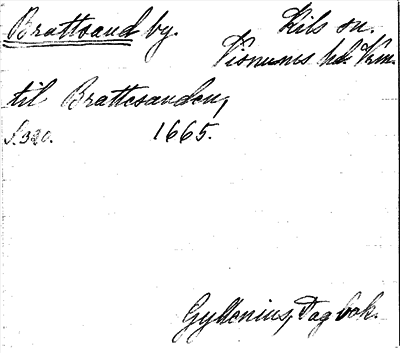 Brattsand by. Kils sn.
Visnums hd Vrm.
til Brattesanden,
S. 320. 1665.
Gyllenius, Dagbok.